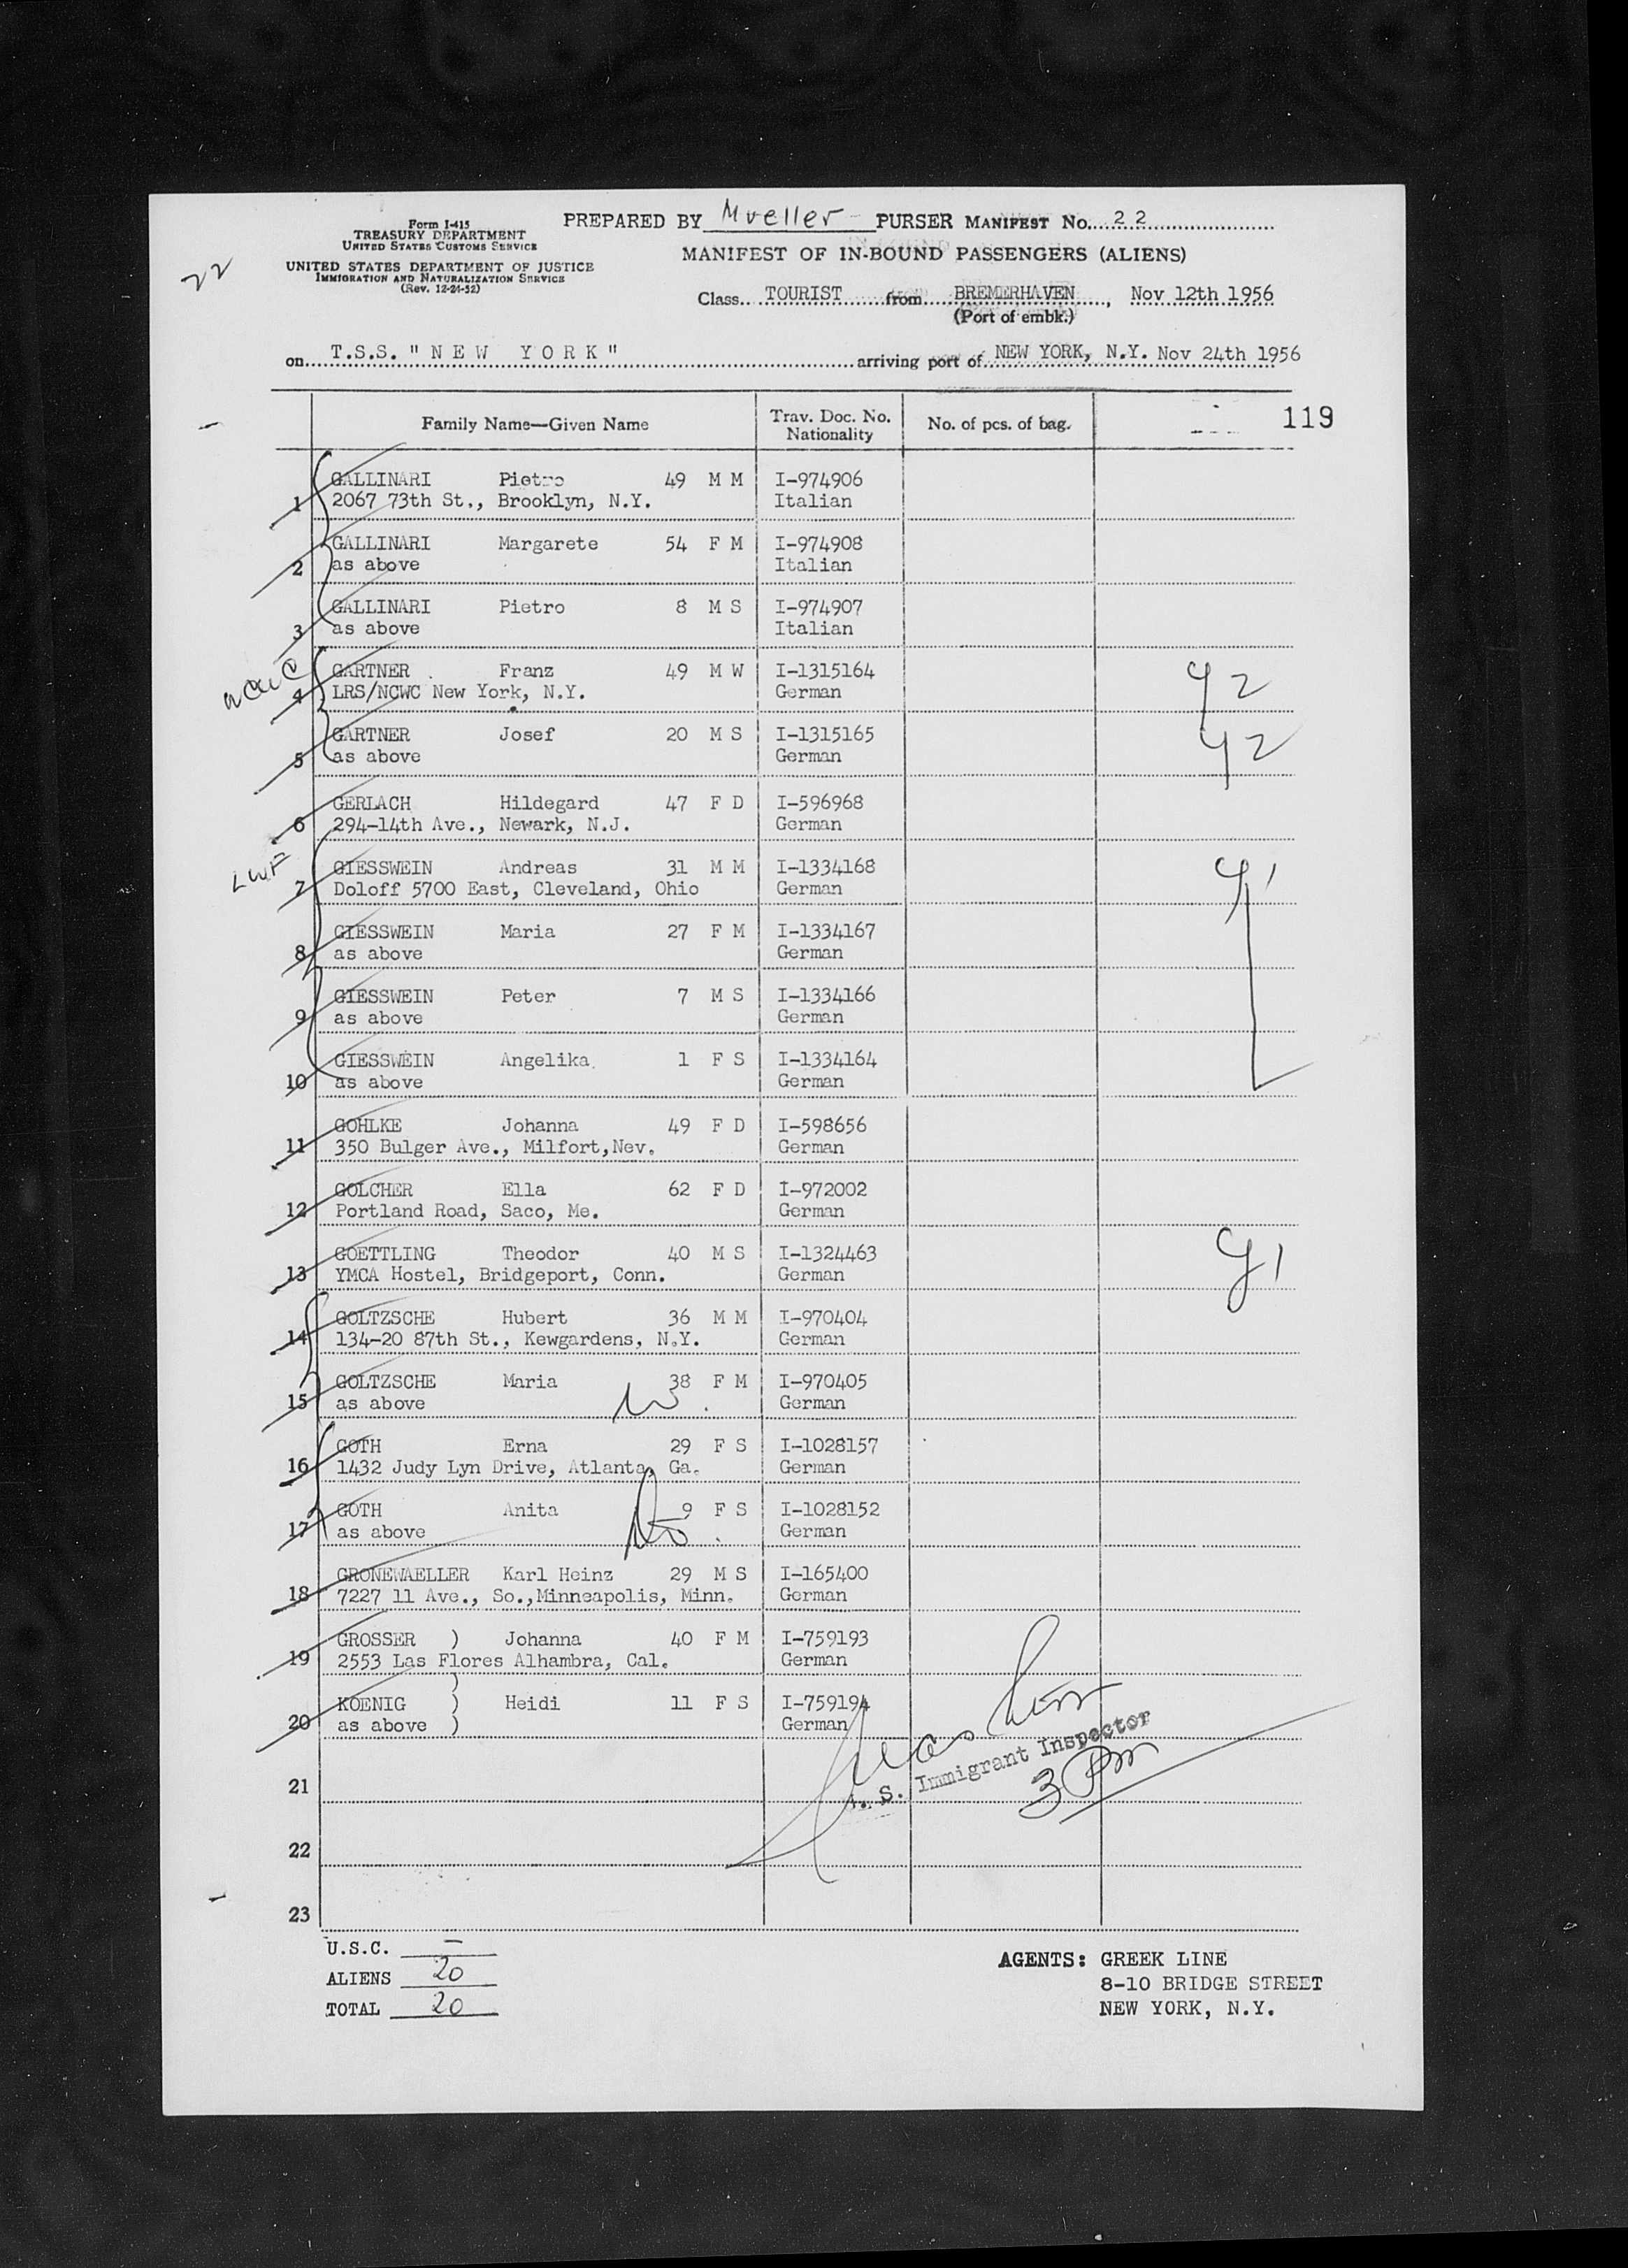 Form I-415
TREASURY DEPARTMENT
UNITED STATES CUSTOMS SERVICE
UNITED STATES DEPARTMENT OF JUSTICE
IMMIGRATION AND NATURALIZATION SERVICE
(Rev. 12-24-52)
22
PREPARED BY Mueller PURSER MANIFEST No. 22
MANIFEST OF IN-BOUND PASSENGERS (ALIENS)
Class TOURIST from BREMERHAVEN, Nov 12th 1956
(Port of embk.)
on T.S.S. "NEW YORK" arriving port of NEW YORK, N.Y. Nov 24th 1956
Family Name—Given Name Trav. Doc. No. Nationality No. of pcs. of bag. 119
1 GALLINARI Pietro 49 M M I-974906
2067 73th St., Brooklyn, N.Y. Italian
2 GALLINARI Margarete 54 F M I-974908
as above Italian
3 GALLINARI Pietro 8 M S I-974907
as above Italian
NCWC
4 GARTNER Franz 49 M W I-1315164 Y2
LRS/NCWC New York, N.Y. German
5 GARTNER Josef 20 M S I-1315165 Y2
as above German
6 GERLACH Hildegard 47 F D I-596968
294-14th Ave., Newark, N.J. German
LWF
7 GIESSWEIN Andreas 31 M M I-1334168 Y1
Doloff 5700 East, Cleveland, Ohio German
8 GIESSWEIN Maria 27 F M I-1334167
as above German
9 GIESSWEIN Peter 7 M S I-1334166
as above German
10 GIESSWEIN Angelika 1 F S I-1334164
as above German
11 GOHLKE Johanna 49 F D I-598656
350 Bulger Ave., Milfort,Nev. German
12 GOLCHER Ella 62 F D I-972002
Portland Road, Saco, Me. German
13 GOETTLING Theodor 40 M S I-1324463 Y1
YMCA Hostel, Bridgeport, Conn. German
14 GOLTZSCHE Hubert 36 M M I-970404
134-20 87th St., Kewgardens, N.Y. German
15 GOLTZSCHE Maria 38 F M I-970405
as above German
16 GOTH Erna 29 F S I-1028157
1432 Judy Lyn Drive, Atlanta, Ga. German
17 GOTH Anita 9 F S I-1028152
as above German
18 GRONEWAELLER Karl Heinz 29 M S I-165400
7227 11 Ave., So.,Minneapolis, Minn. German
19 GROSSER ) Johanna 40 F M I-759193
2553 Las Flores Alhambra, Cal. German
)
20 KOENIG ) Heidi 11 F S I-759194
as above ) German
. S. Immigrant Inspector
3 PM
21
22
23
U.S.C. —
ALIENS 20
TOTAL 20
AGENTS: GREEK LINE
8-10 BRIDGE STREET
NEW YORK, N.Y.